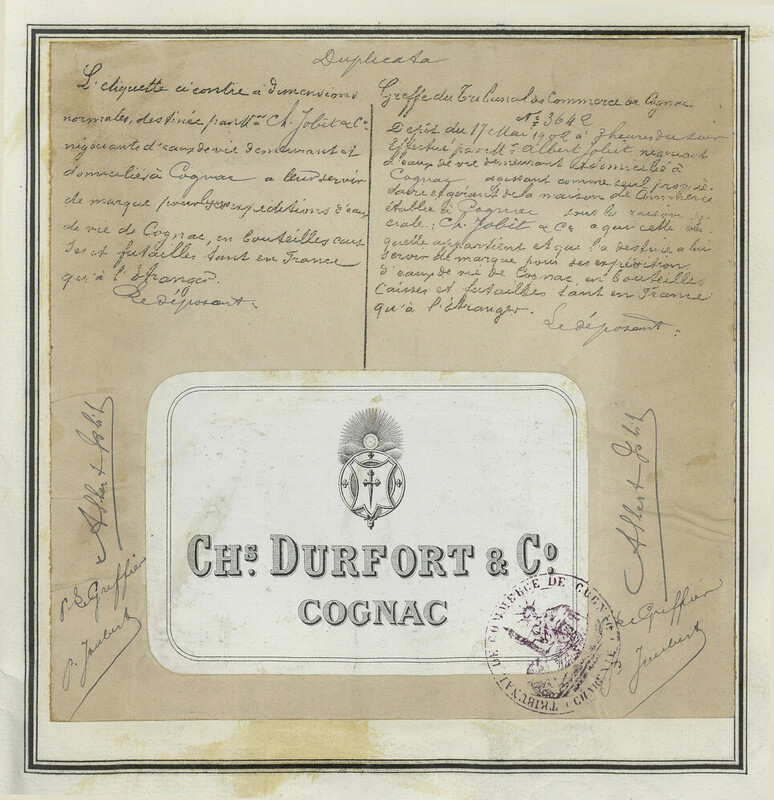 Duplicata
L'étiquette ci contre à dimensions
normales, destinée par Mr Ch. Jobit & Cie
négociants d'eaux de vie demeurant et
domiciliés à Cognac a leur servir
de marque pour expéditions d'eau
de vie de Cognac, en bouteilles cais
ses et futailles tant en France
qu'à l'étranger.
Le déposant:
Greffe du Tribunal de Commerce de Cognac
No 3642
Dépôt du 17 Mai 1902 à 3 heures du soir
Effectué par Mr Albert Jobit négociant
d'eaux de vie demeurant et domicilié à
Cognac agissant comme seul proprié
taire et gérant de la maison de Commerce
établie à Cognac sous la raison so
ciale: Ch. Jobit & Co a qui cette éti
quette appartient et que la destine a lui
servir de marque pour ses expédition
d'eaux de vie de Cognac, en bouteilles
caisses et futailles tant en France
qu'à l'étranger.
Le déposant:
Albert Jobit
Le Greffier
P. Joubert
CHs. DURFORT & Co.
COGNAC
TRIBUNAL DE COMMERCE DE COGNAC
CHARENTE
Albert Jobit
Le Greffier
Joubert